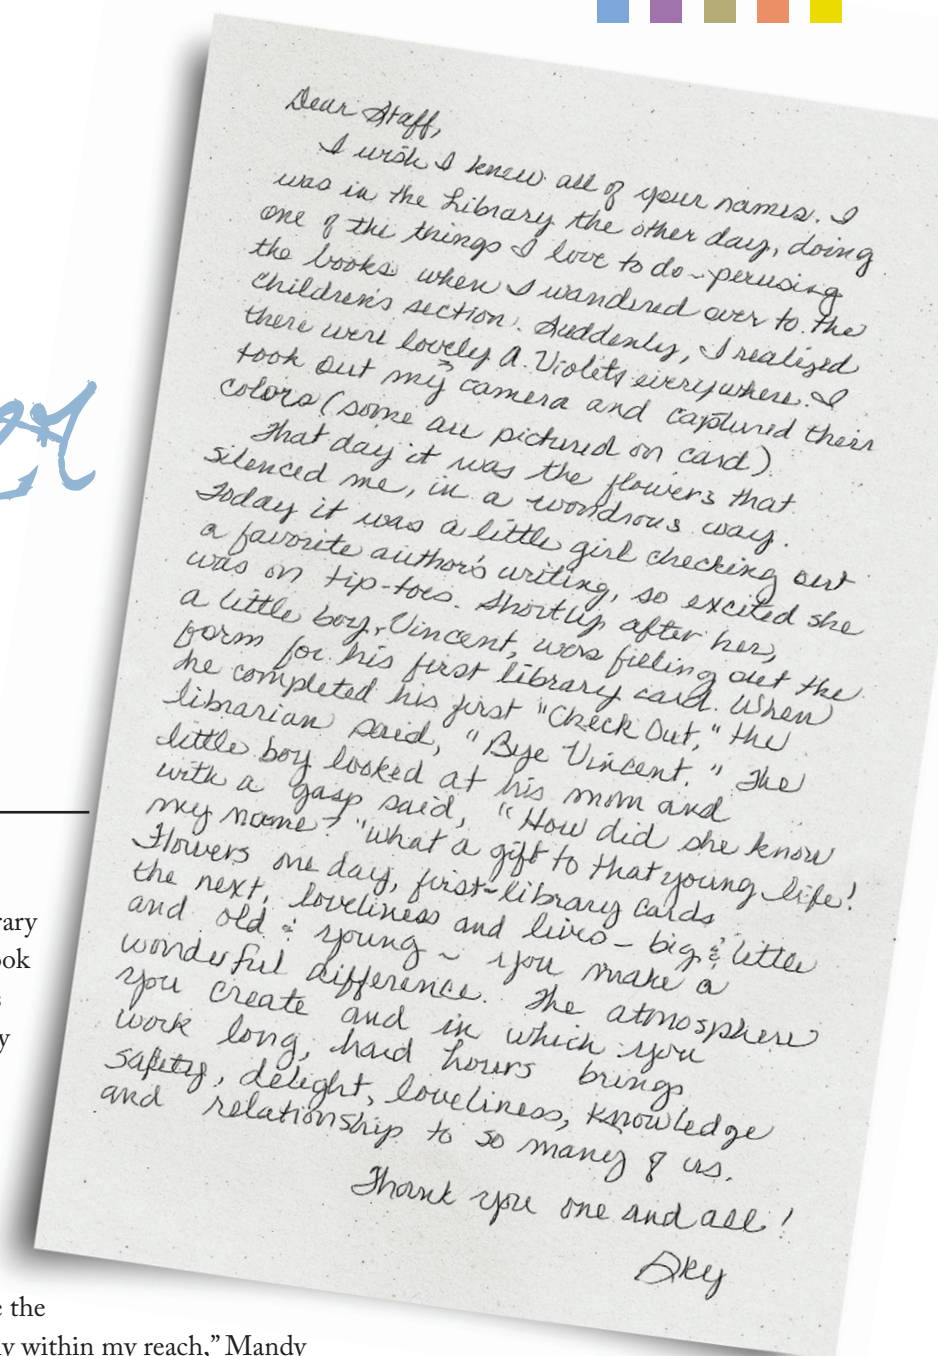 Dear Staff,
I wish I knew all of your names. I
was in the Library the other day, doing
one of the things I love to do - perusing
the books when I wandered over to the
children's section. Suddenly, I realized
there were lovely A. Violets everywhere. I
took out my camera and captured their
colors (some are pictured on card).
That day it was the flowers that
silenced me, in a wondrous way.
Today it was a little girl checking out
a favorite author's writing, so excited she
was on tip-toes. Shortly after her,
a little boy, Vincent, was filling out the
form for his first library card. When
he completed his first "Check Out," the
librarian said, "Bye Vincent." The
little boy looked at his mom and
with a gasp said, "How did she know
my name?" What a gift to that young life!
Flowers one day, first-library cards
the next, loveliness and lives - big & little
and old & young ~ you make a
wonderful difference. The atmosphere
you create and in which you
work long, hard hours brings
safety, delight, loveliness, knowledge
and relationship to so many of us.
Thank you one and all!
Sky
rary
ook
s
y
e the
ly within my reach," Mandy